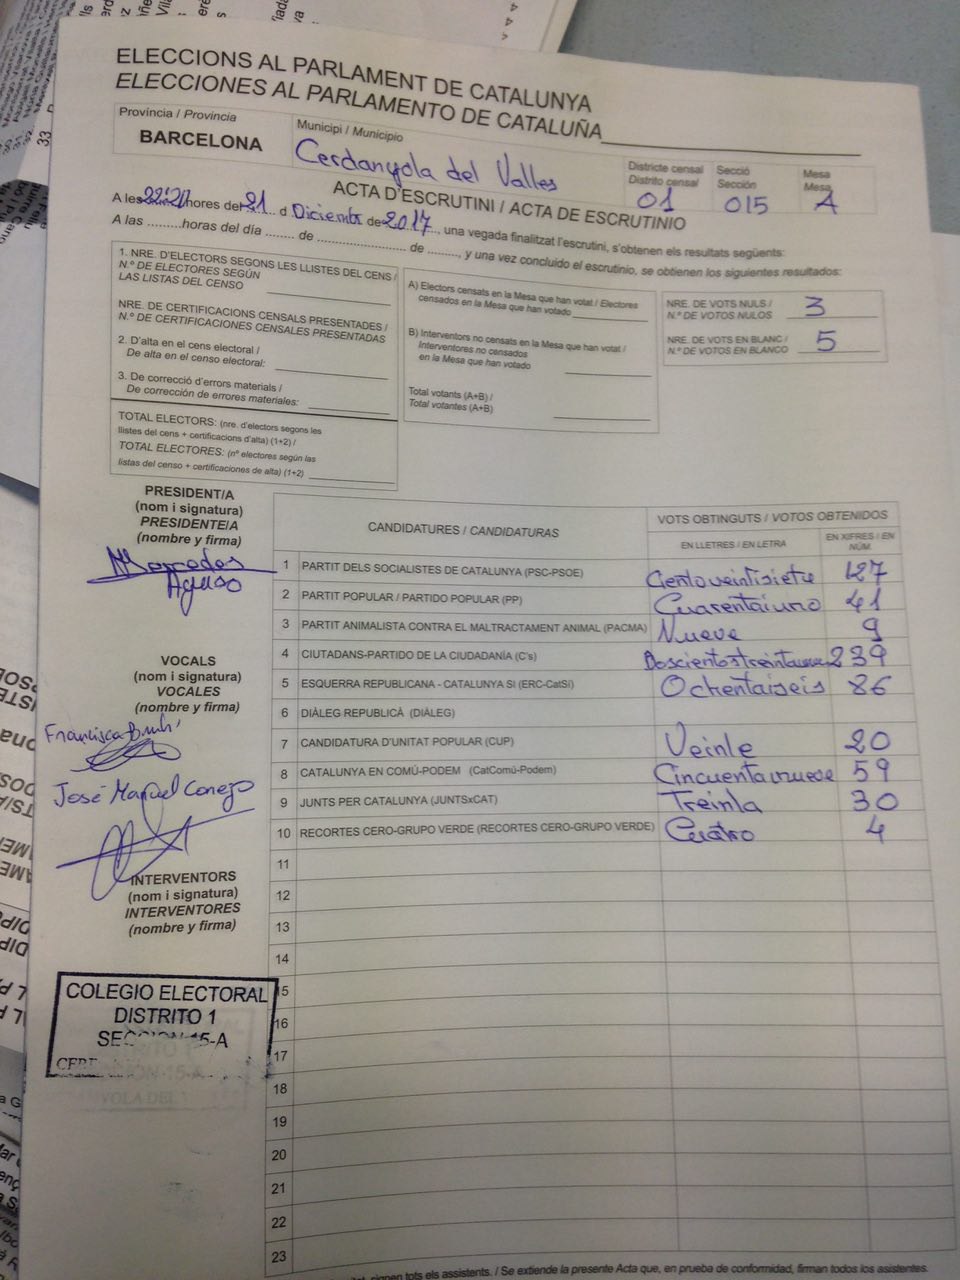 ELECCIONS AL PARLAMENT DE CATALUNYA
ELECCIONES AL PARLAMENTO DE CATALUÑA
Província / Provincia
BARCELONA
Municipi / Municipio
Cerdanyola del Valles
Districte censal
Distrito censal
01
Secció
Sección
015
Mesa
Mesa
A
ACTA D'ESCRUTINI / ACTA DE ESCRUTINIO
A les 22:20 hores del 21 d Diciembre de 2017, una vegada finalitzat l'escrutini, s'obtenen els resultats següents:
A las .........horas del día ........ de ........................ de ........., y una vez concluido el escrutinio, se obtienen los siguientes resultados:
1. NRE. D'ELECTORS SEGONS LES LLISTES DEL CENS /
N.º DE ELECTORES SEGÚN
LAS LISTAS DEL CENSO
NRE. DE CERTIFICACIONS CENSALS PRESENTADES /
N.º DE CERTIFICACIONES CENSALES PRESENTADAS
2. D'alta en el cens electoral /
De alta en el censo electoral:
3. De correcció d'errors materials /
De corrección de errores materiales:
TOTAL ELECTORS: (nre. d'electors segons les
llistes del cens + certificacions d'alta) (1+2) /
TOTAL ELECTORES: (nº electores según las
listas del censo + certificaciones de alta) (1+2)
A) Electors censats en la Mesa que han votat / Electores
censados en la Mesa que han votado
B) Interventors no censats en la Mesa que han votat /
Interventores no censados
en la Mesa que han votado
Total votants (A+B) /
Total votantes (A+B)
NRE. DE VOTS NULS /
N.º DE VOTOS NULOS 3
NRE. DE VOTS EN BLANC /
N.º DE VOTOS EN BLANCO 5
PRESIDENT/A
(nom i signatura)
PRESIDENTE/A
(nombre y firma)
Mercedes
VOCALS
(nom i signatura)
VOCALES
(nombre y firma)
Francisca
José Manuel Conejo
INTERVENTORS
(nom i signatura)
INTERVENTORES
(nombre y firma)
COLEGIO ELECTORAL
DISTRITO 1
SECCION 15-A
CANDIDATURES / CANDIDATURAS
VOTS OBTINGUTS / VOTOS OBTENIDOS
EN LLETRES / EN LETRA
EN XIFRES / EN
NÚM.
1 PARTIT DELS SOCIALISTES DE CATALUNYA (PSC-PSOE) Cientoveintisiete 127
2 PARTIT POPULAR / PARTIDO POPULAR (PP) Cuarentaiuno 41
3 PARTIT ANIMALISTA CONTRA EL MALTRACTAMENT ANIMAL (PACMA) Nueve 9
4 CIUTADANS-PARTIDO DE LA CIUDADANÍA (C's) Doscientostreintanueve 239
5 ESQUERRA REPUBLICANA - CATALUNYA SÍ (ERC-CatSí) Ochentaiseis 86
6 DIÀLEG REPUBLICÀ (DIÀLEG)
7 CANDIDATURA D'UNITAT POPULAR (CUP) Veinte 20
8 CATALUNYA EN COMÚ-PODEM (CatComú-Podem) Cincuentainueve 59
9 JUNTS PER CATALUNYA (JUNTSxCAT) Treinta 30
10 RECORTES CERO-GRUPO VERDE (RECORTES CERO-GRUPO VERDE) Cuatro 4
11
12
13
14
15
16
17
18
19
20
21
22
23
signen tots els assistents. / Se extiende la presente Acta que, en prueba de conformidad, firman todos los asistentes.